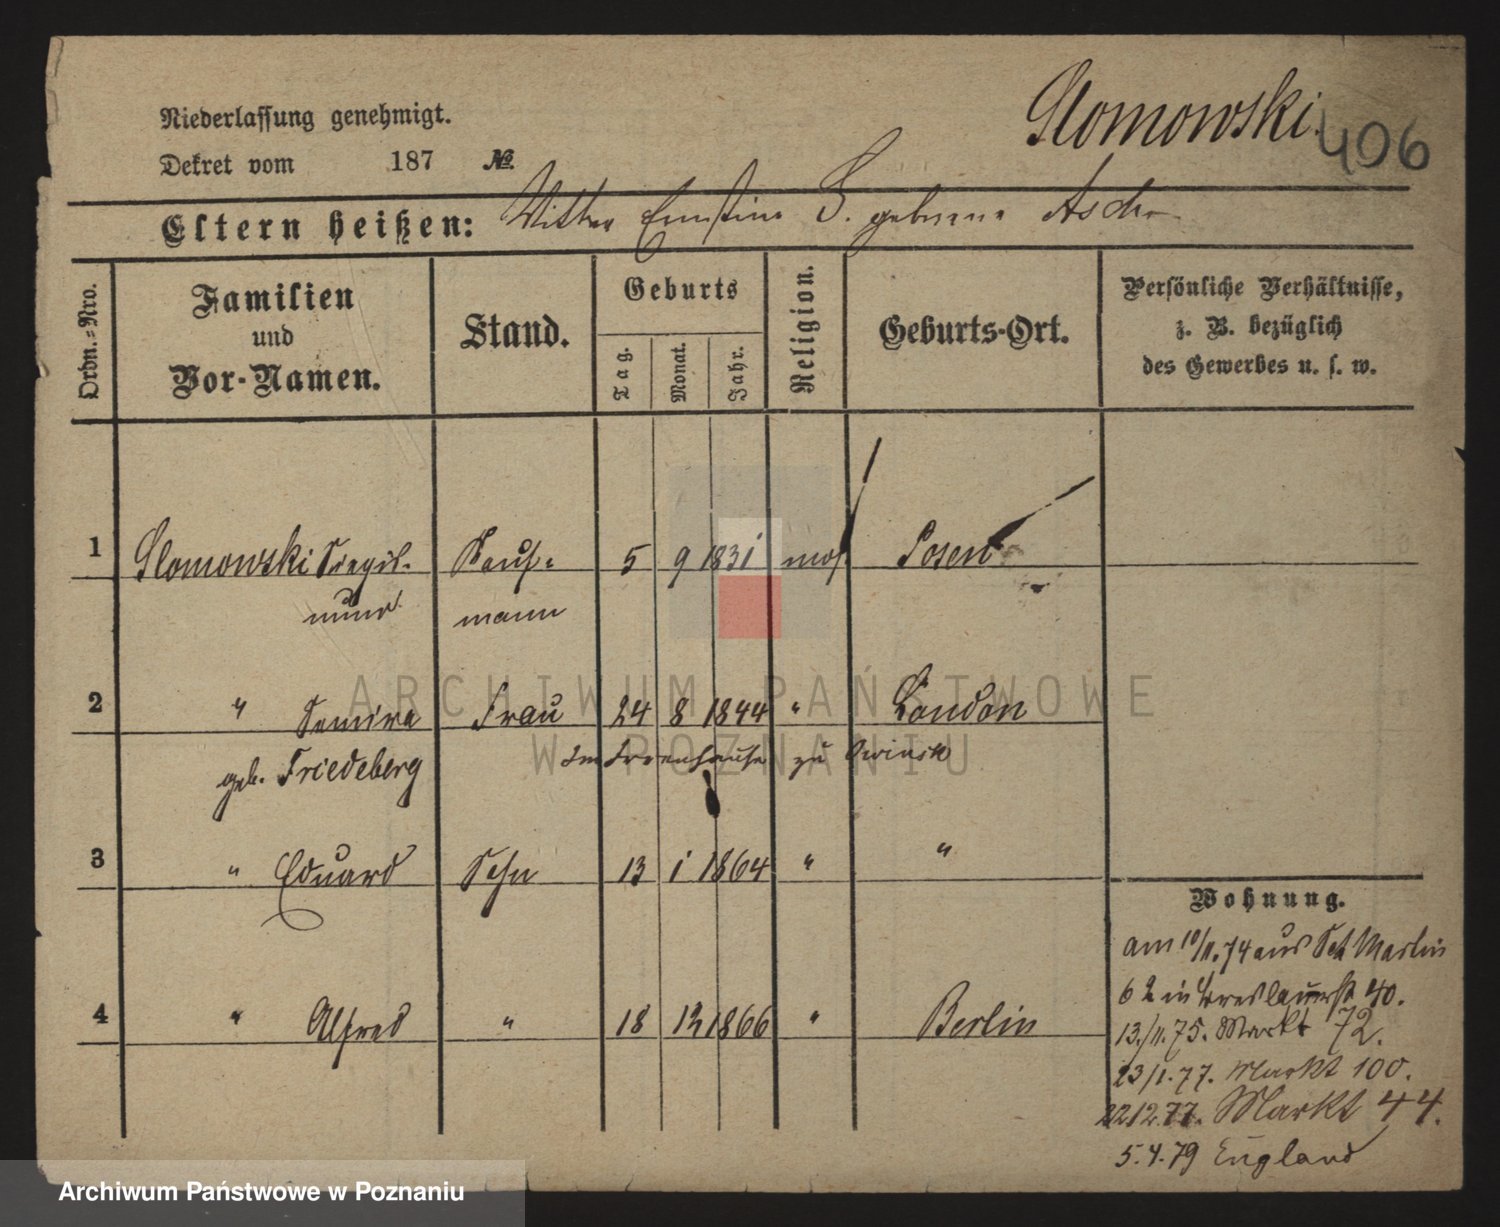 Slomowski.
406
Niederlassung genehmigt.
Dekret vom 187 No.
Eltern heißen: Mutter Ernstine S. geborene Asch
Ordn.-Nro.
Familien und Vor-Namen.
Stand.
Geburts
Tag.
Monat.
Jahr.
Religion.
Geburts-Ort.
Persönliche Verhältnisse,
z. B. bezüglich
des Gewerbes u. s. w.
1 Slomowski Siegis- Kauf- 5 9 1831 mos Posen
mund mann
2 " Frau 24 8 1844 " London
geb. Friedeberg Im Irrenhause zu Owinsk
3 " Eduard Sohn 13 1 1864 " "
4 " Alfred " 18 12 1866 " Berlin
Wohnung.
am 10/11.74 aus Sct Martin
62 in Breslauerst 40.
13/11.75. Markt 72.
23/1.77. Markt 100.
22 12.77. Markt 44.
5.4.79 England
ARCHIWUM PAŃSTWOWE
W POZNANIU
Archiwum Państwowe w Poznaniu